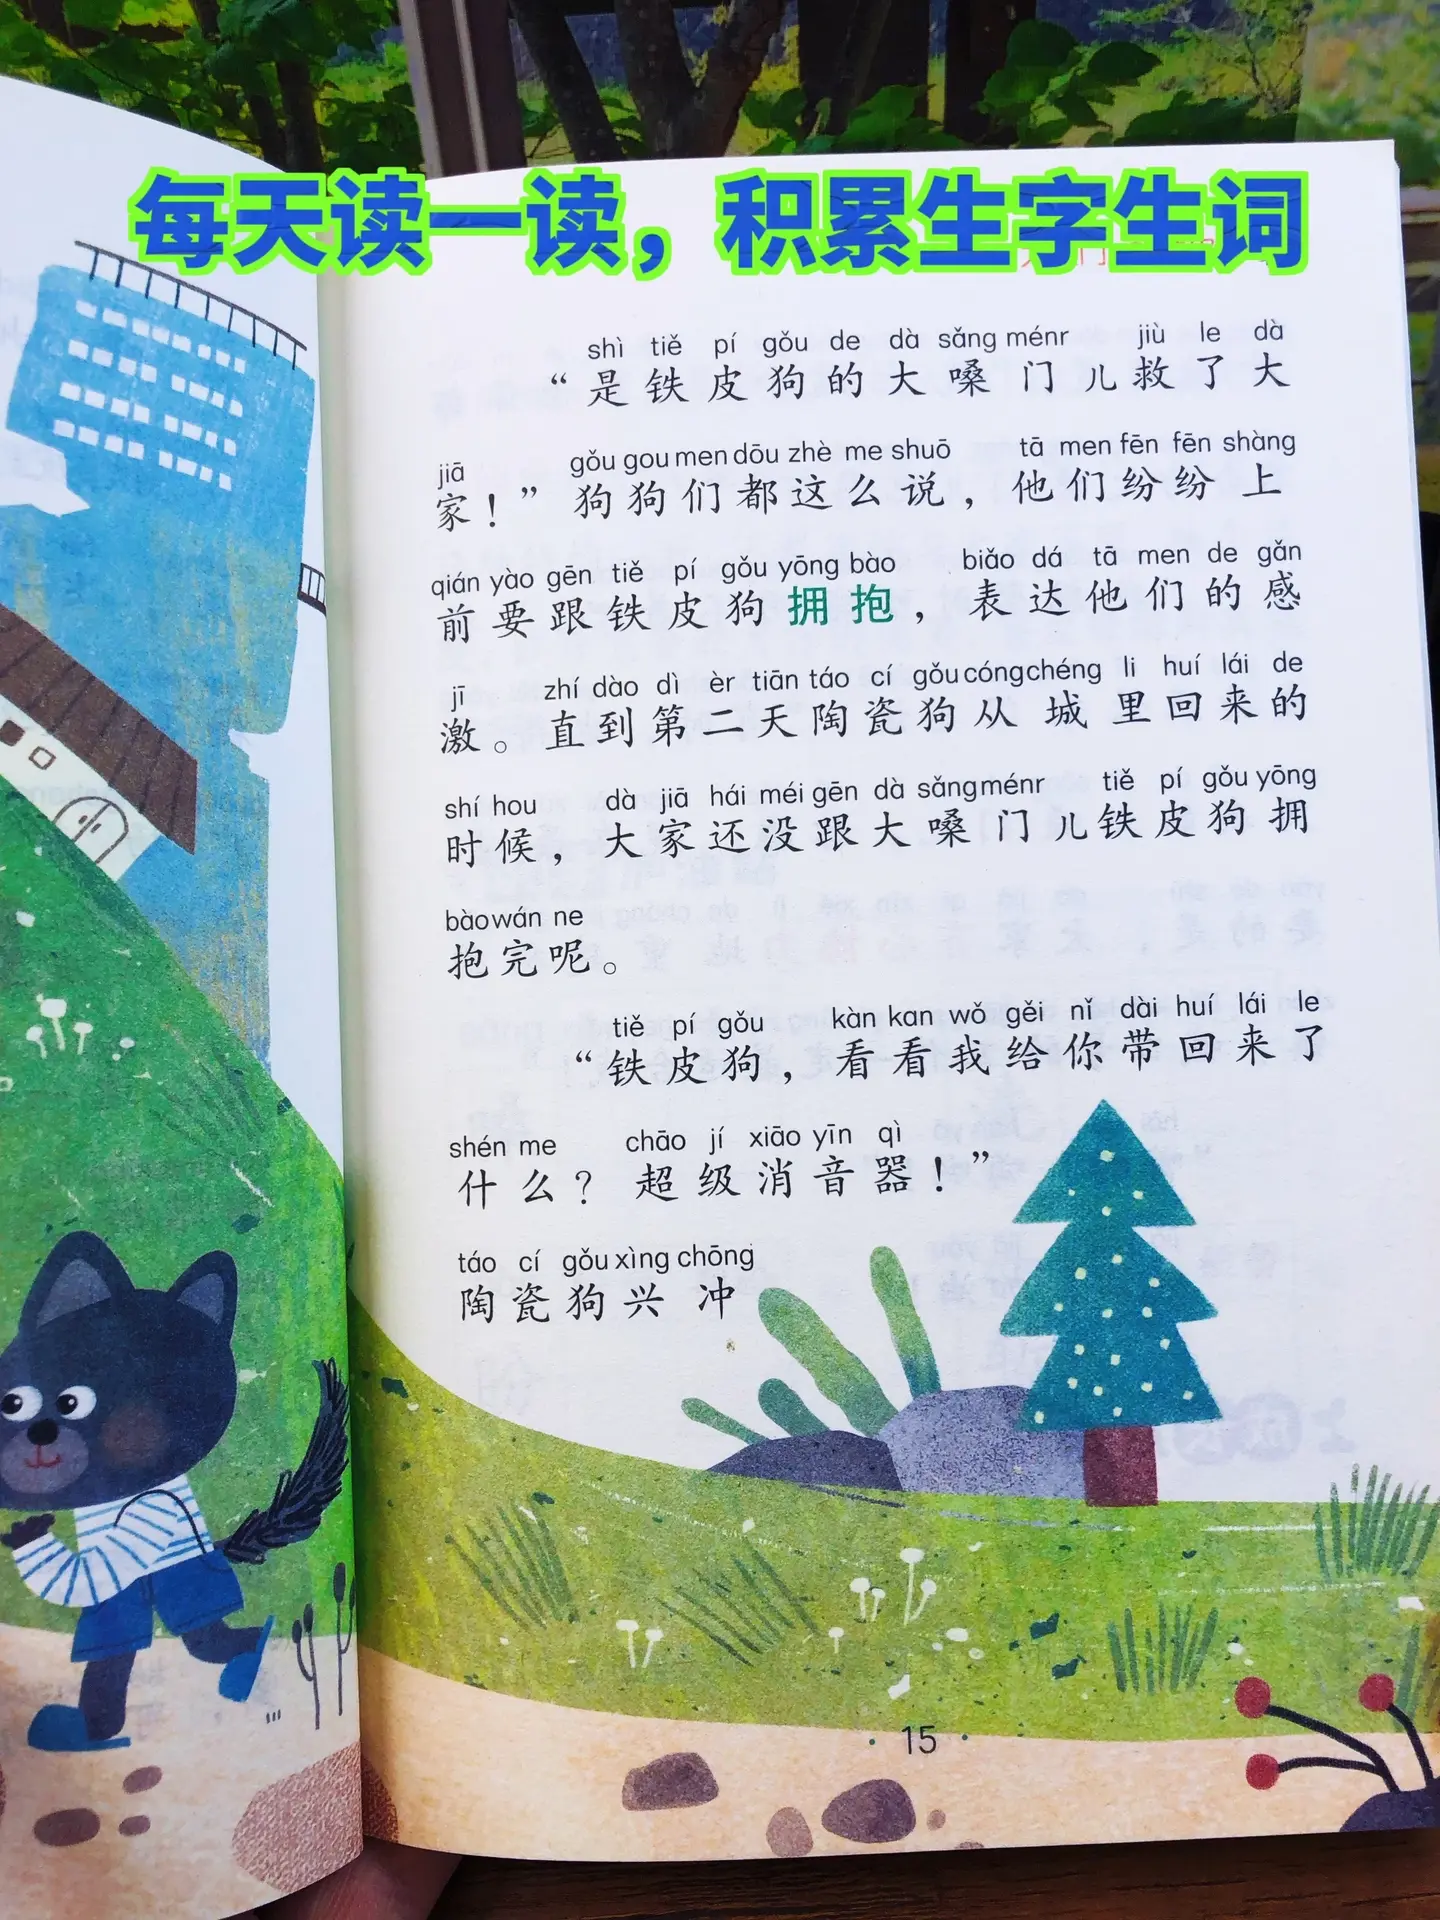 每天读一读，积累生字生词
shì tiě pí gǒu de dà sǎng ménr jiù le dà
“是铁皮狗的大嗓门儿救了大
jiā gǒu gou men dōu zhè me shuō tā men fēn fēn shàng
家！”狗狗们都这么说，他们纷纷上
qián yào gēn tiě pí gǒu yōng bào biǎo dá tā men de gǎn
前要跟铁皮狗拥抱，表达他们的感
jī zhí dào dì èr tiān táo cí gǒu cóng chéng li huí lái de
激。直到第二天陶瓷狗从城里回来的
shí hou dà jiā hái méi gēn dà sǎng ménr tiě pí gǒu yōng
时候，大家还没跟大嗓门儿铁皮狗拥
bào wán ne
抱完呢。
tiě pí gǒu kàn kan wǒ gěi nǐ dài huí lái le
“铁皮狗，看看我给你带回来了
shén me chāo jí xiāo yīn qì
什么？超级消音器！”
táo cí gǒu xìng chōng
陶瓷狗兴冲
15